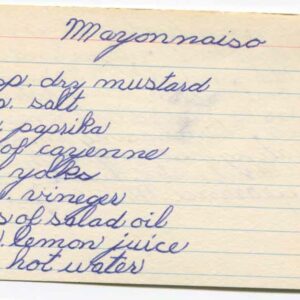 Mayonnaise
p. dry mustard
p. salt
paprika
of cayenne
yolks
. vineger
s of salad oil
. lemon juice
hot water